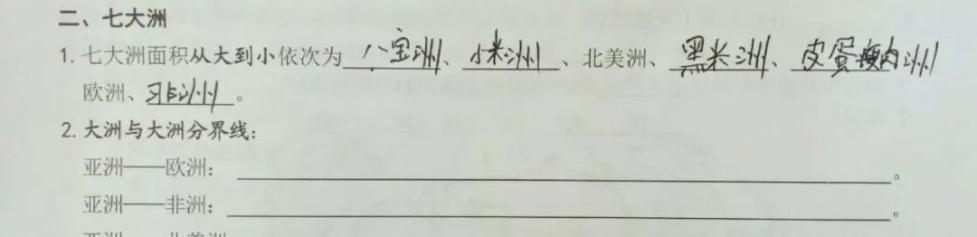 二、七大洲
1. 七大洲面积从大到小依次为八宝洲、小米洲、北美洲、黑米洲、皮蛋瘦肉洲
欧洲、洲。
2. 大洲与大洲分界线：
亚洲——欧洲：。
亚洲——非洲：。